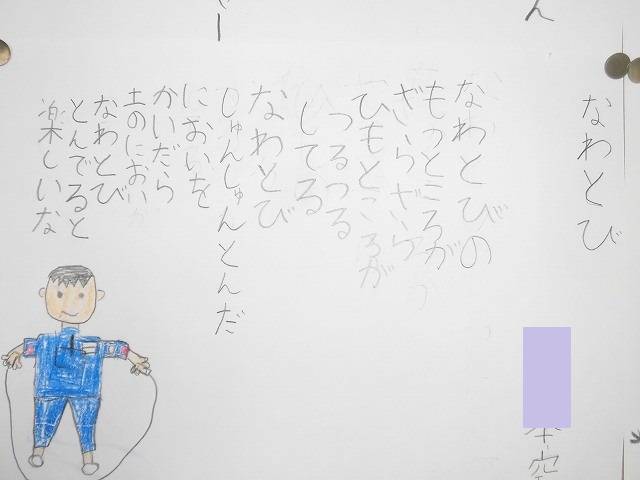 なわとび
なわとびの
もつところが
ざらざら
ひもところが
つるつる
してる
なわとび
しゅんしゅんとんだ
においを
かいだら
土のにおい
なわとび
とんでると
楽しいな